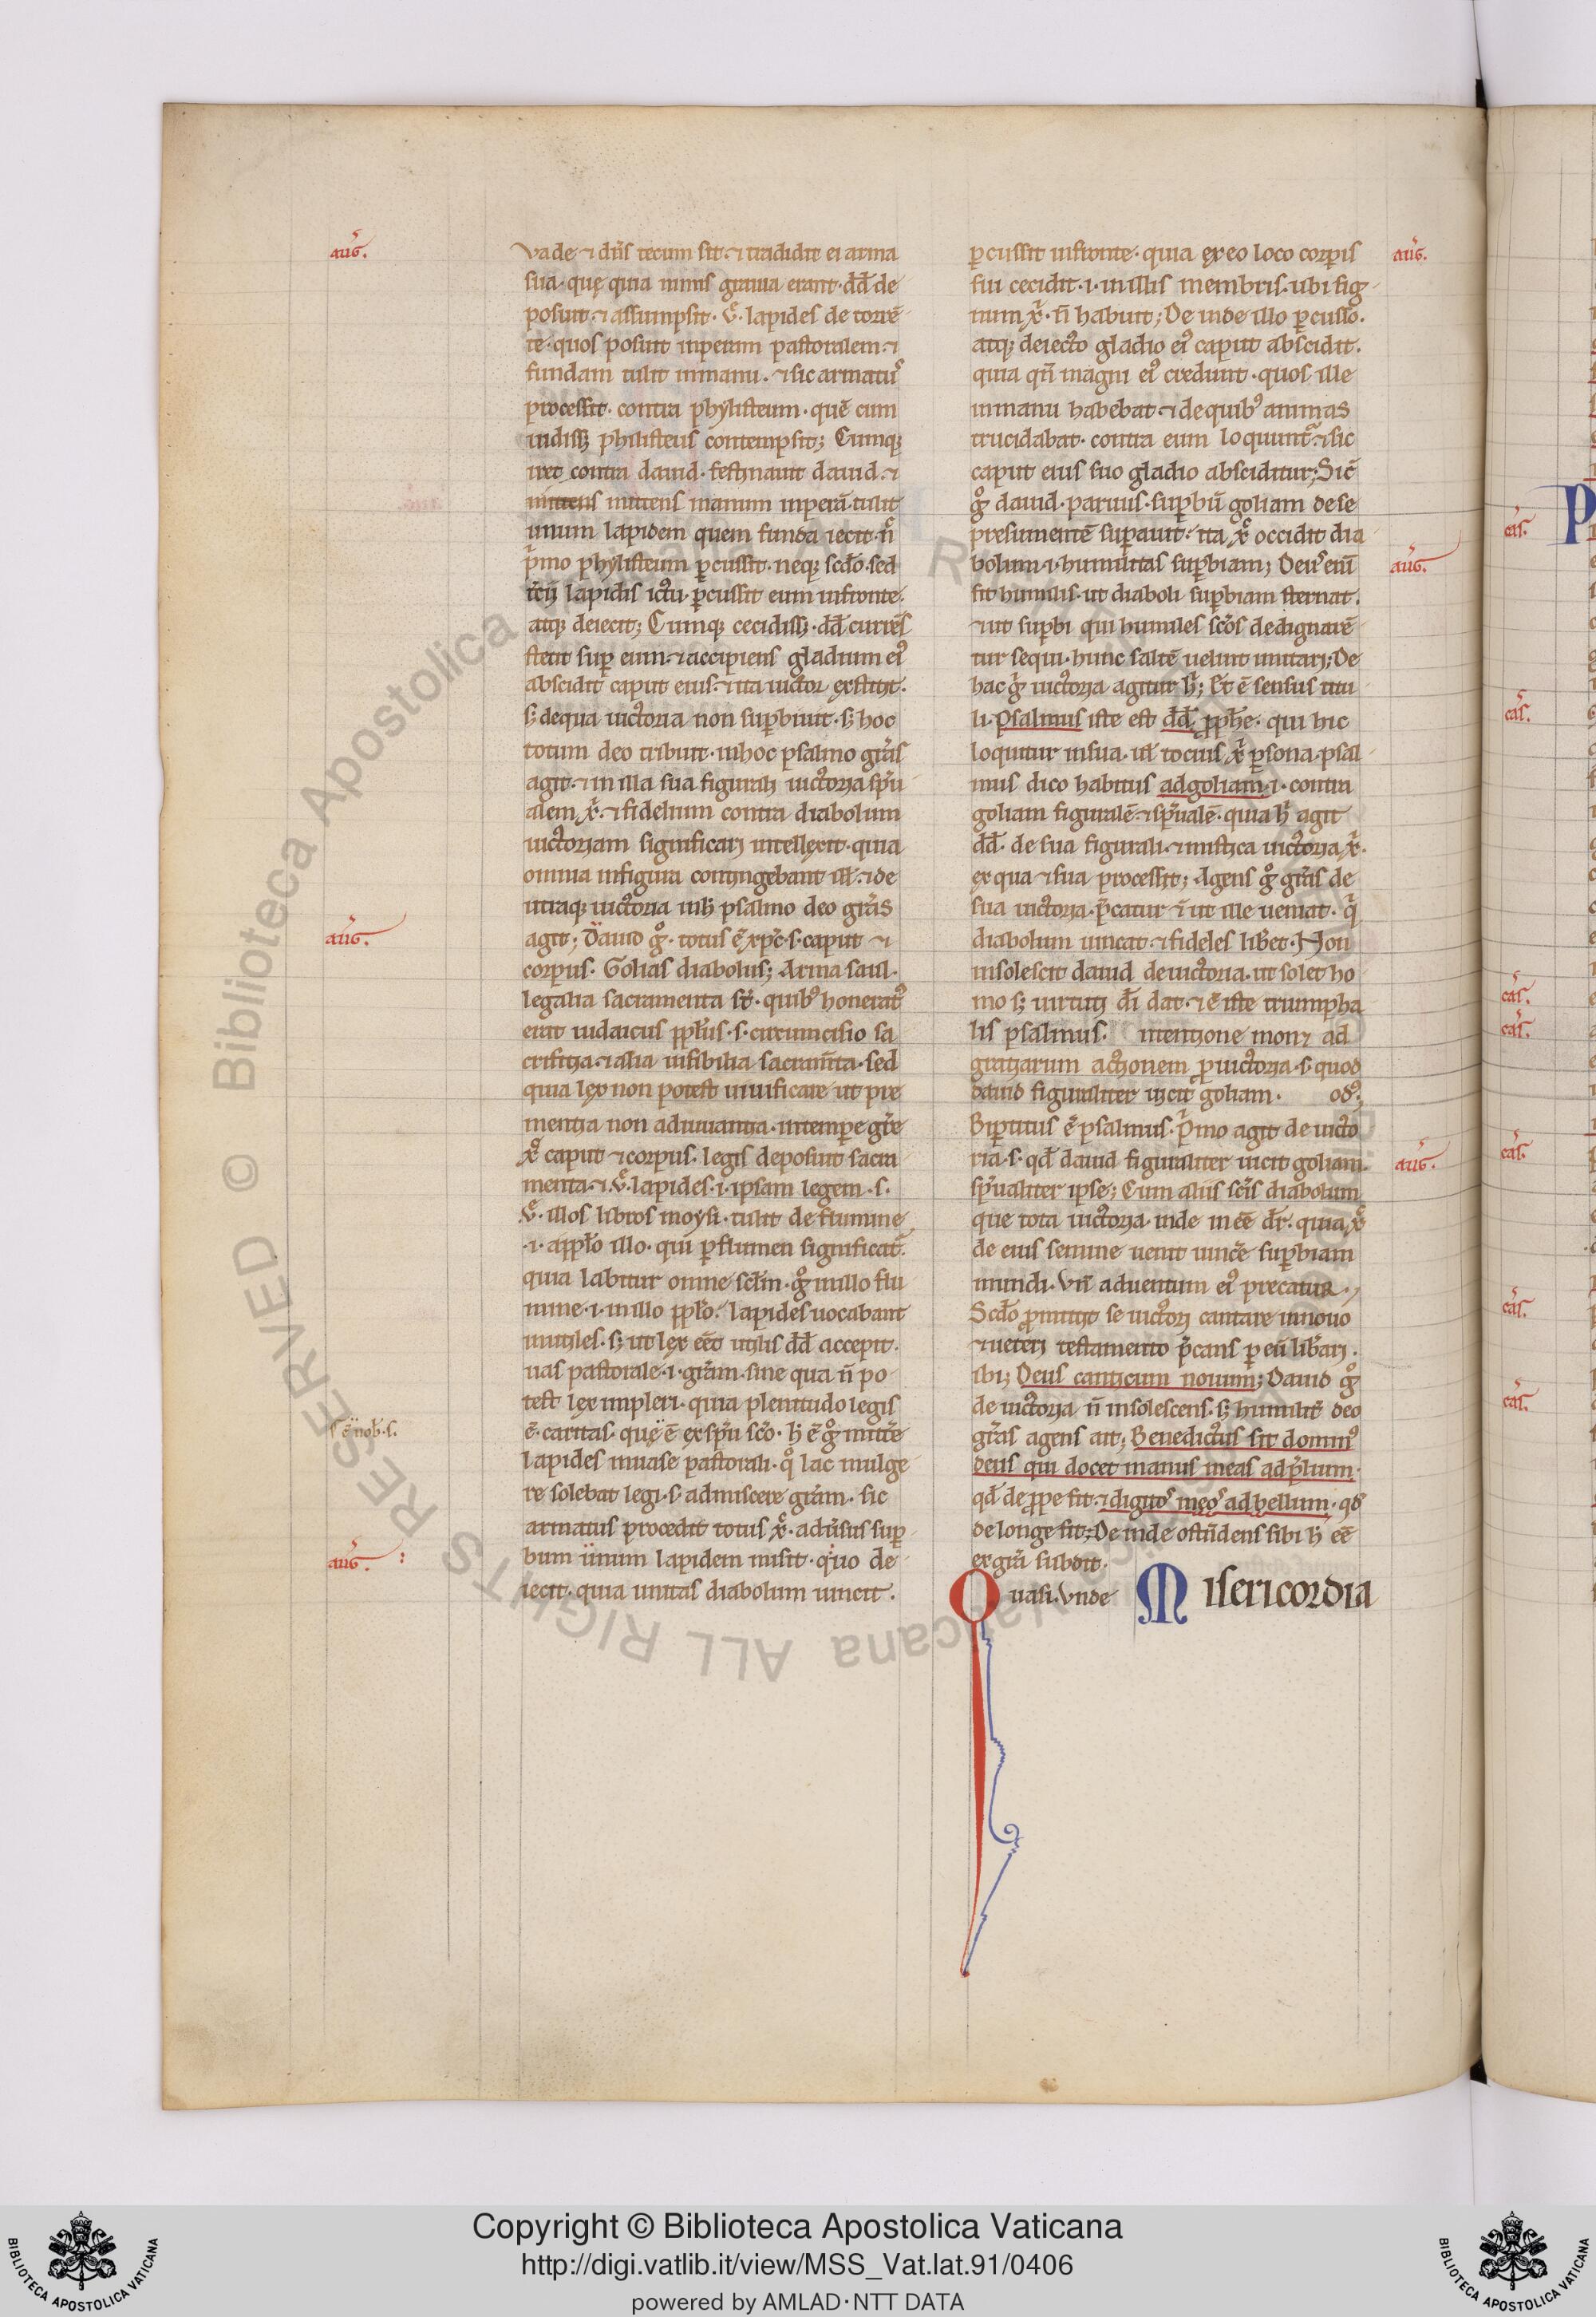 aug̃.
vade ⁊ dñs tecum sit. ⁊ tradidit ei arma
sua. quę quia nimis grauia erant. dd̃ de
posuit. ⁊ assumpsit. v̇. lapides de torrẽ
te. quos posuit in peram pastoralem. ⁊
fundam tulit in manu. ⁊ sic armatus
processit. contra phylisteum. quẽ cum
uidiss& philisteus contempsit; Cumq;
iret contra dauid. festinauit dauid. ⁊
mittens mittens manum in perã. tulit
unum lapidem quem funda iecit. ñ
p̃mo phylisteum ꝑcussit. neq; scđo. sed
t̃cij lapidis ictu. ꝑcussit eum in fronte.
atq; deiecit; Cumq; cecidiss&. dd̃ currẽs
stetit suꝑ eum. ⁊ accipiens gladium ei⁹
abscidit caput eius. ⁊ ita uictor exstitit.
s; de qua uictoria non suꝑbiuit. s; hoc
totum deo tribuit. in hoc psalmo gr̃as
agit. ⁊ in illa sua figurali uictoria sp̃u
alem xp̃i. ⁊ fidelium contra diabolum
uictoriam significari intellexit. quia
omnia in figura contingebant ill̃. ⁊ de
utraq; uictoria in h̃ psalmo deo gr̃as
aug̃.
agit; Dauid g̊. totus ẽ xp̃c. s. caput ⁊
corpus. Golias diabolus; Arma saul.
legalia sacramenta st̃. quib⁹ honerat⁹
erat iudaicus ppl̃us. s. circumcisio sa
crificia. ⁊ alia uisibilia sacram̃ta. sed
quia lex non potest uiuificare ut pre
mentia non adiuuantia. in tempe gr̃e
xp̃s caput ⁊ corpus. legis deposuit sacra
menta. ⁊ .v̇. lapides. i. ipsam legem. s.
.v̇. illos libros moysi. tulit de flumine
.i. a ppl̃o illo. qui ꝑ flumen significat̃.
quia labitur omne scl̃m. g̊ in illo flu
mine. i. in illo ppl̃o. lapides uocabant
inutiles. s; ut lex eẽt utilis dd̃ accepit.
uas pastorale. i. gr̃am. sine qua ñ po
test lex impleri. quia plenitudo legis
s̃ ẽ nob̃. s.
ẽ. caritas. quę ẽ ex sp̃u sc̃o. h̃ ẽ g̊ mitt̃e
lapides in uase pastorali. q̊ lac mulge
re solebat legi. s. admiscere gr̃am. sic
armatus procedit totus xp̃s. adũsus suꝑ
aug̃.
bum unum lapidem misit. q̊ uno de
iecit. quia unitas diabolum uincit.
ꝑcussit in fronte. quia ex eo loco corꝑis
aug̃.
sui cecidit. i. in illis membris. ubi sig
num xp̃i. ñ habuit; De inde illo ꝑcusso.
atq; deiecto gladio ei⁹ caput abscidit.
quia qñ magni ei⁹ credunt. quos ille
in manu habebat. ⁊ de quib⁹ animas
trucidabat. contra eum loquunt̃. ⁊ sic
caput eius suo gladio absciditur; Sic̃
g̊ dauid. paruus. suꝑbũ goliam de se
presumentẽ suꝑauit. ita xp̃s occidit dia
bolum. i. humilitas suꝑbiam; Deus enĩ
aug̃.
fit humilis. ut diaboli suꝑbiam sternat.
⁊ ut suꝑbi qui humiles sc̃os dedignarẽ
tur sequi. hunc saltẽ uelint imitari; De
hac g̊ uictoria agitur h̃; Et ẽ sensus titu
li. Psalmus iste est dd̃. pph̃e. qui hic
loquitur in sua. ul̃ tocius xp̃i ꝑsona. psal
mus dico habitus ad goliam. i. contra
goliam figuralẽ. ⁊ sp̃ualẽ. quia h̃ agit
dd̃. de sua figurali. ⁊ mistica uictoria xp̃i.
ex qua ⁊ sua processit; Agens g̊ gr̃as de
sua uictoria. p̃catur ẽ ut ille ueniat. q̃
diabolum uincat. ⁊ fideles lib̃et. Non
insolescit dauid de uictoria. ut solet ho
mo s; uirtuti dĩ dat. ⁊ ẽ iste triumpha
lis psalmus. intentione mon⁊ ad
gratiarum actionem ꝓ uictoria. s. quod
dauid figuraliter uicit goliam. od⁹.
Bipertitus ẽ psalmus. p̃mo agit de uicto
ria. s. qđ dauid figuraliter uicit goliam.
aug̃.
sp̃ualiter ipse; Cum aliis sc̃is diabolum
que tota uictoria. inde m̃cẽ dr̃. quia xp̃s
de eius semine uenit uinc̃e suꝑbiam
mundi. Vñ aduentum ei⁹ precatur.
Scđo ꝓmittit se uictori cantare in nouo
⁊ ueteri testamento p̃cans ꝑ eũ lib̃ari.
ibi; Deus canticum nouum; Dauid g̊
de uictoria ñ insolescens. s; humilit̃ deo
gr̃as agens ait; Benedictus sit domin⁹
deus qui docet manus meas ad p̃lium.
qđ de ꝓpe fit. ⁊ digitos meos ad bellum. qđ
de longe fit; De inde ostẽdens sibi h̃ eẽ
ex gr̃a subdit.
Quasi. Vnde Misericordia
cas̃.
P
cas̃.
cas̃.
cas̃.
cas̃.
cas̃.
cas̃.
© Biblioteca Apostolica Vaticana ALL RIGHTS RESERVED
Copyright © Biblioteca Apostolica Vaticana
http://digi.vatlib.it/view/MSS_Vat.lat.91/0406
powered by AMLAD·NTT DATA
BIBLIOTECA APOSTOLICA VATICANA
BIBLIOTECA APOSTOLICA VATICANA